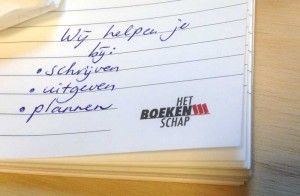 Wij helpen je
bij:
• schrijven
• uitgeven
• plannen
HET
BOEKEN
SCHAP